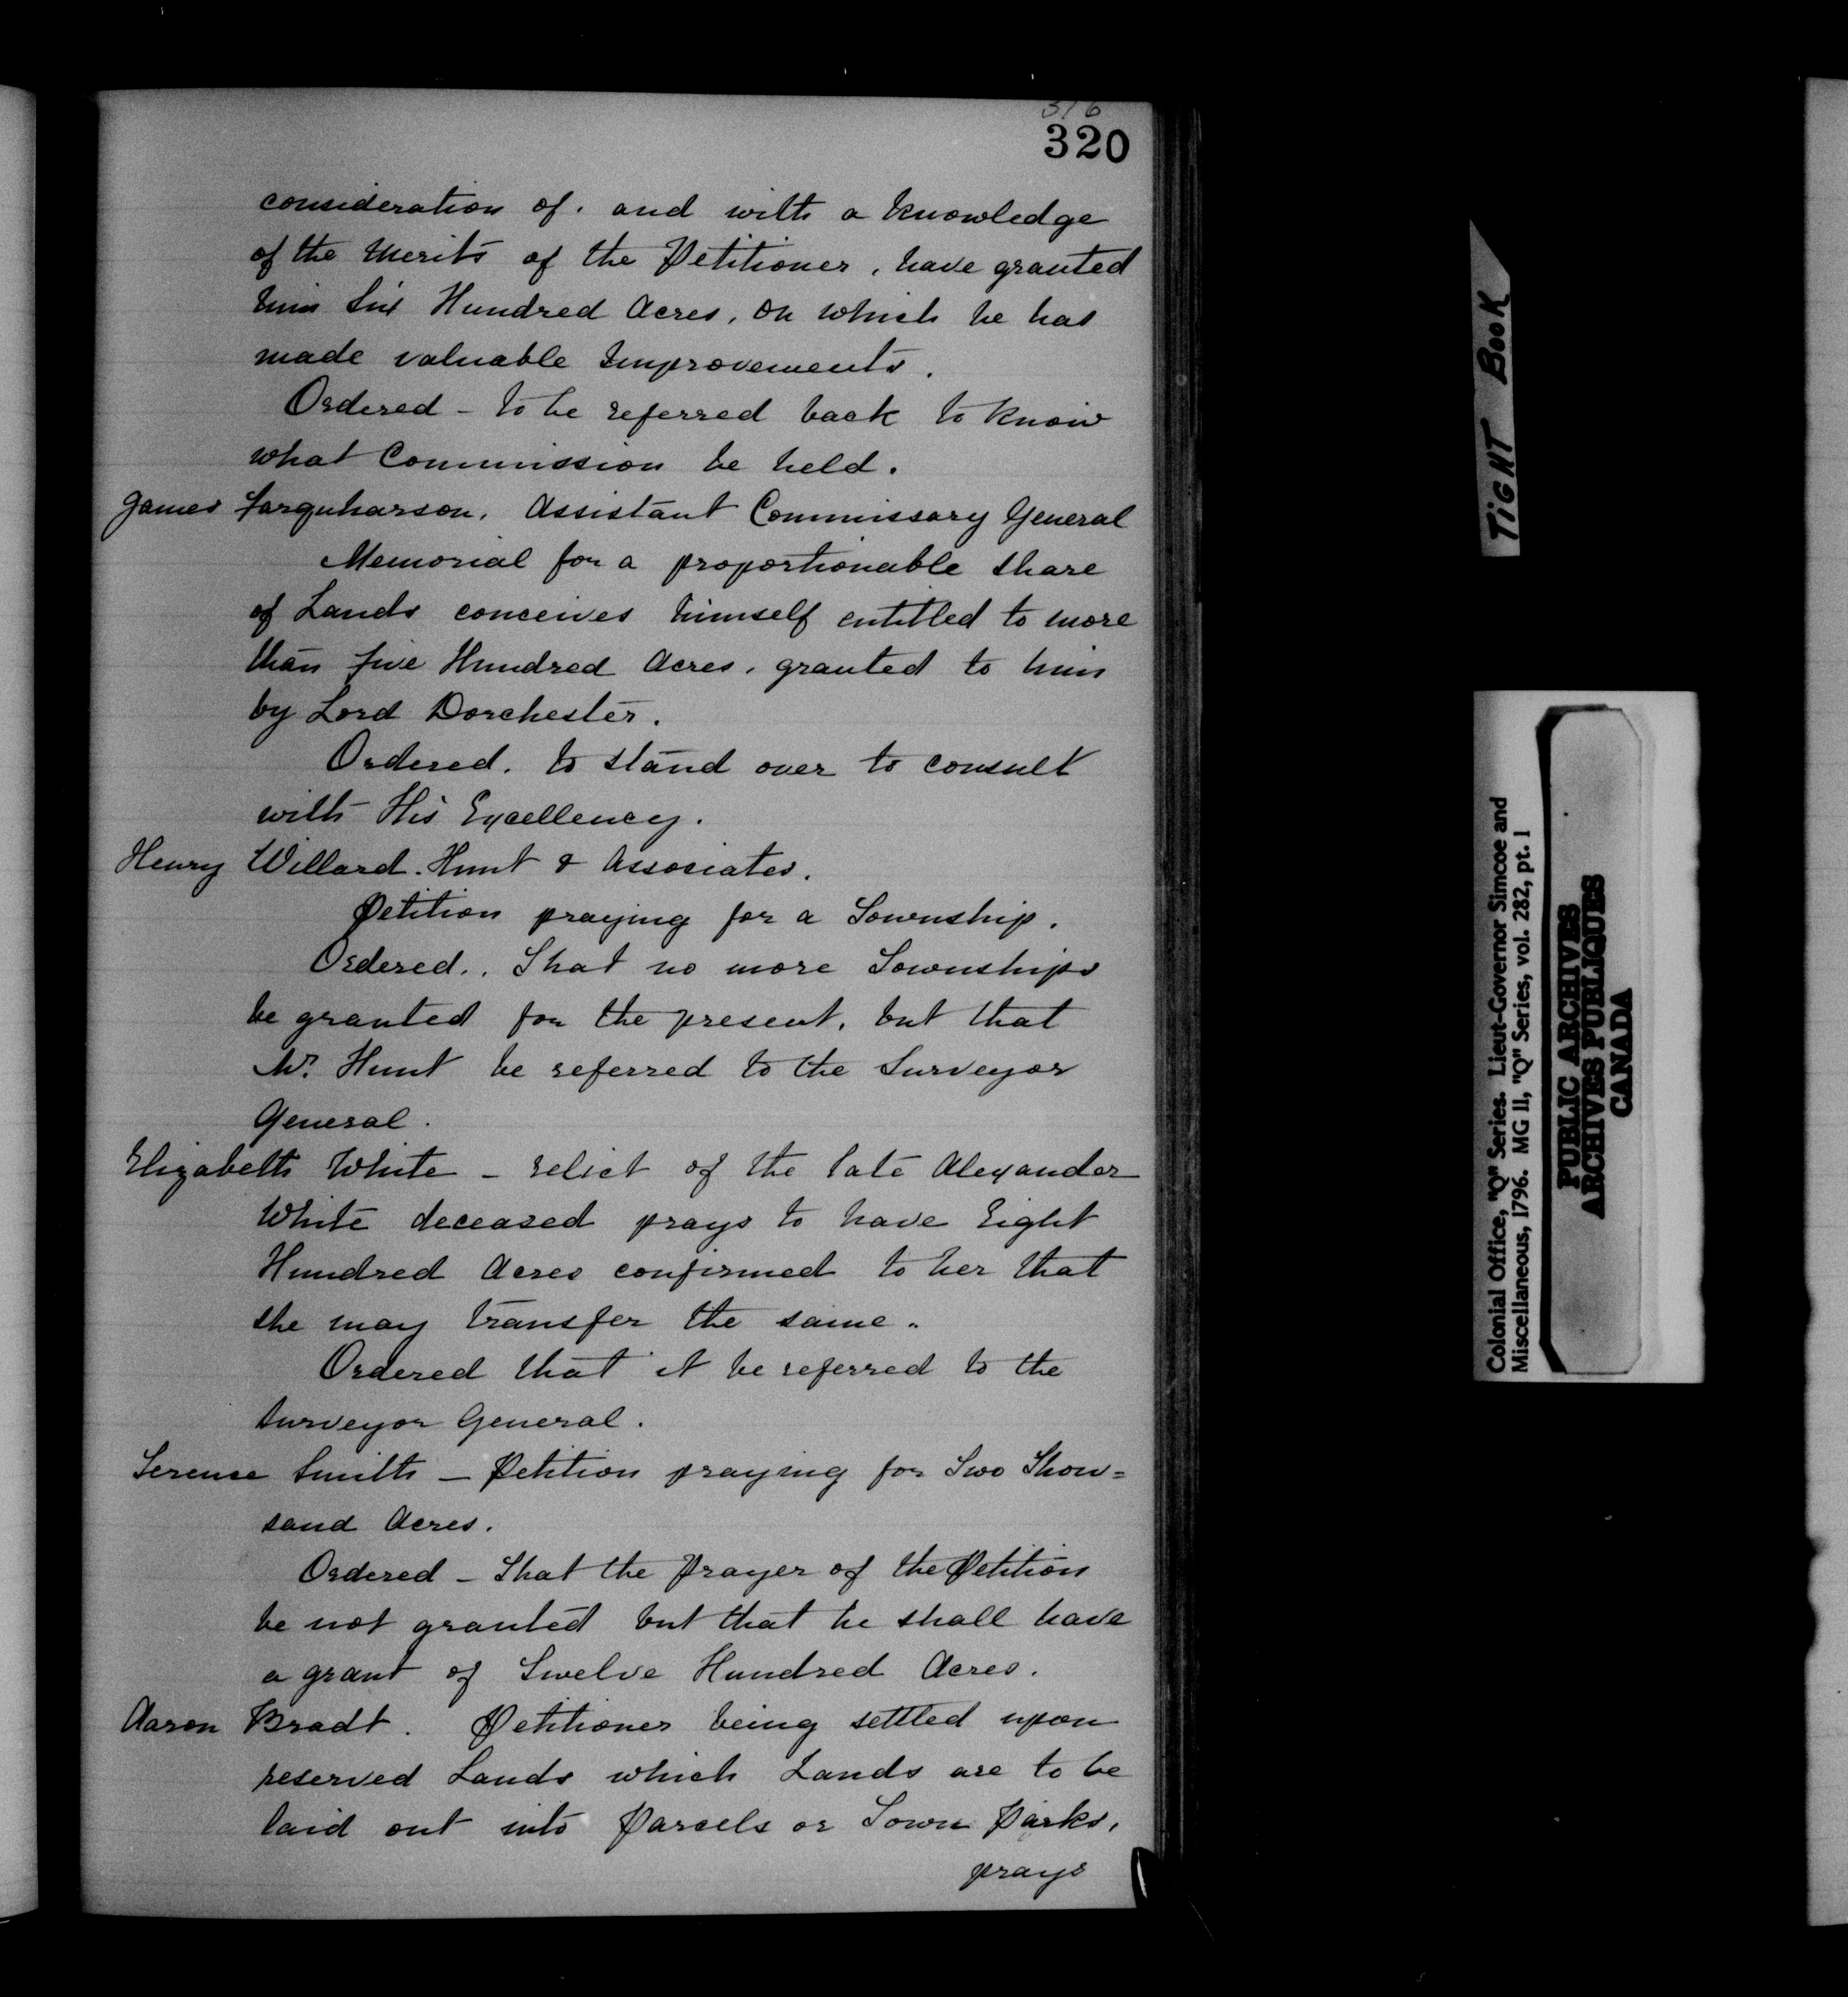 316
320
consideration of. and with a knowledge
of the Merits of the Petitioner, have granted
him Six Hundred Acres, on which he has
made valuable Improvements.
Ordered - to be referred back to know
what Commission he held.
James Farquharson, Assistant Commissary General
Memorial for a proportionable share
of Lands conceives himself entitled to more
than five Hundred Acres, granted to him
by Lord Dorchester.
Ordered. to stand over to consult
with His Excellency.
Henry Willard Hunt & Associates.
Petition praying for a Township.
Ordered. That no more Townships
be granted for the present, but that
Mr. Hunt be referred to the Surveyor
General.
Elizabeth White - relict of the late Alexander
White deceased prays to have Eight
Hundred Acres confirmed to her that
she may transfer the same.
Ordered that it be referred to the
Surveyor General.
Terence Smith - Petition praying for Two Thou=
sand Acres.
Ordered - That the Prayer of the Petition
be not granted but that he shall have
a grant of Twelve Hundred Acres.
Aaron Bradt. Petitioner being settled upon
reserved Lands which Lands are to be
laid out into Parcels or Town Parks,
prays
TIGHT BOOK
Colonial Office, "Q" Series. Lieut-Governor Simcoe and
Miscellaneous, 1796. MG 11, "Q" Series, vol. 282, pt. 1
PUBLIC ARCHIVES
ARCHIVES PUBLIQUES
CANADA